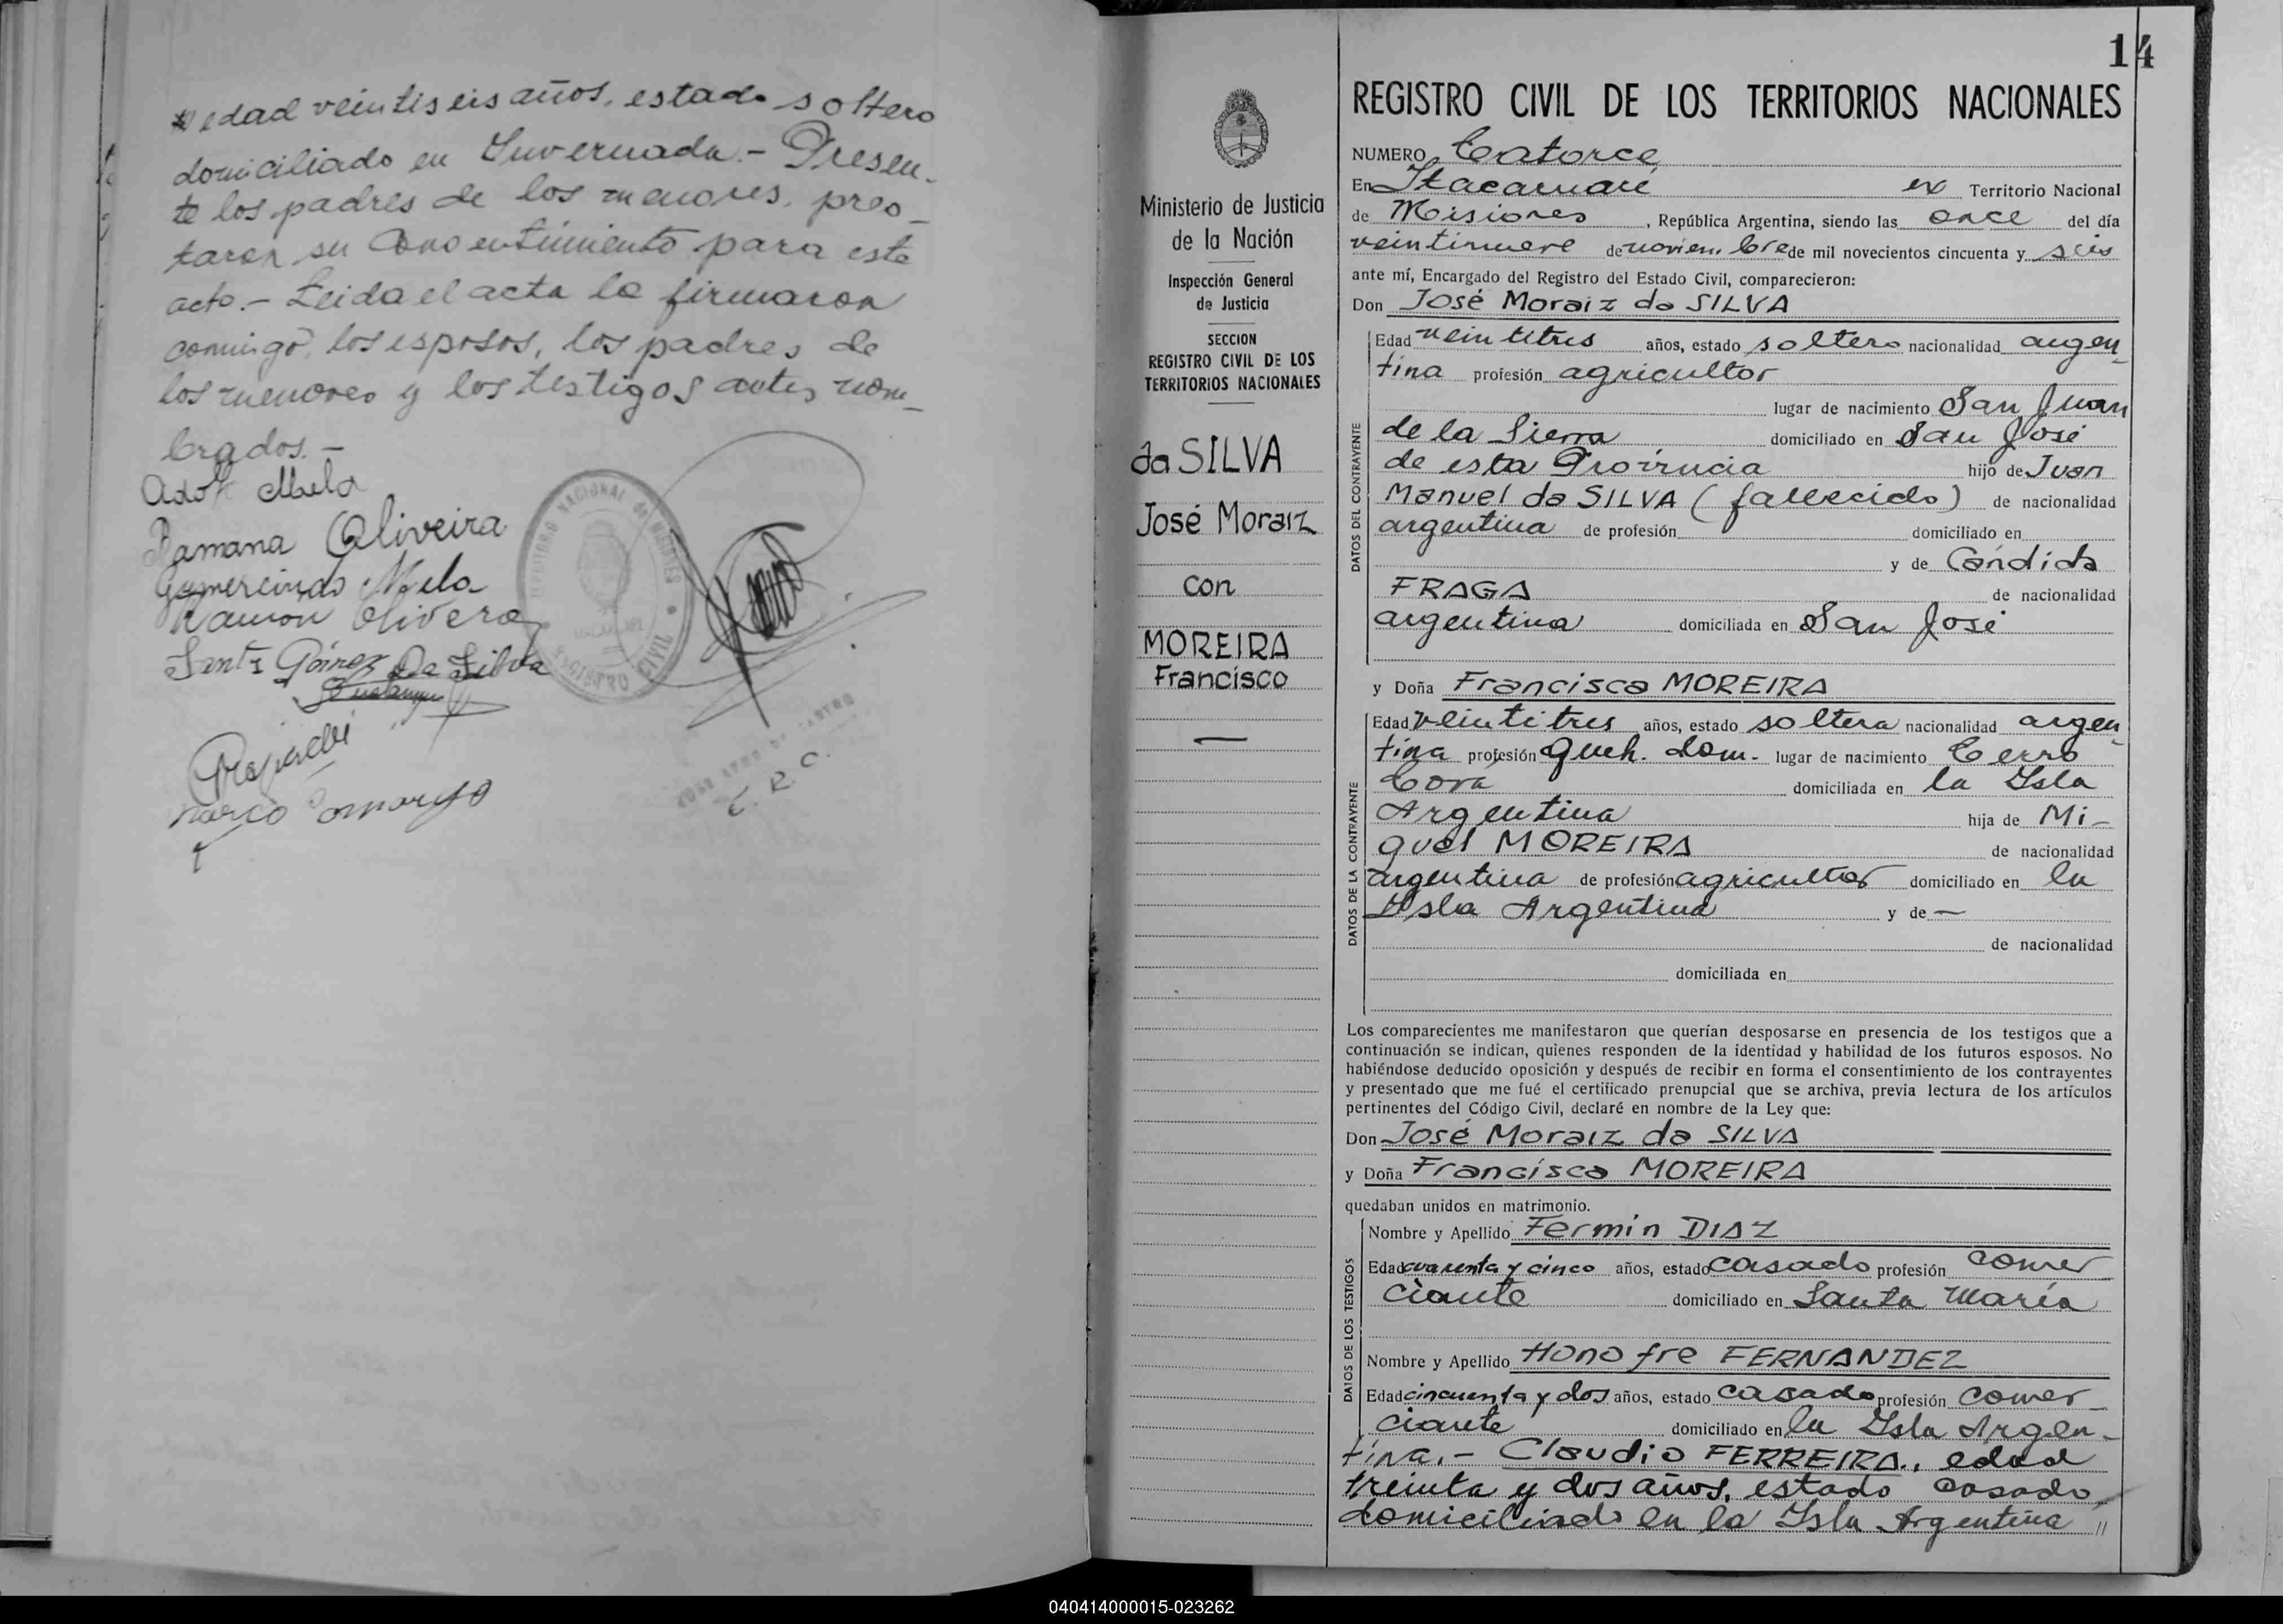 edad veintiseis años, estado soltero
domiciliado en Invernada.- Presen-
te los padres de los menores, pres-
taron su consentimiento para este
acto.- Leida el acta la firmaron
comingo, los esposos, los padres de
los menores y los testigos antes nom-
brados.-
Adof Melo
Ramana Oliveira
Gumercindo Melo
Ramon Olivera
Gómez Da Silva
REGISTRO CIVIL
14
REGISTRO CIVIL DE LOS TERRITORIOS NACIONALES
Ministerio de Justicia
de la Nación
Inspección General
de Justicia
SECCION
REGISTRO CIVIL DE LOS
TERRITORIOS NACIONALES
da SILVA
José Moraiz
con
MOREIRA
Francisca
NUMERO Catorce
En Itacaruaré ex Territorio Nacional
de Misiones, República Argentina, siendo las once del día
veintinueve de noviembre de mil novecientos cincuenta y seis
ante mí, Encargado del Registro del Estado Civil, comparecieron:
Don José Moraiz da SILVA
DATOS DEL CONTRAYENTE
Edad veintitres años, estado soltero nacionalidad argen-
tina profesión agricultor
lugar de nacimiento San Juan
de la Sierra domiciliado en San José
de esta Provincia hijo de Juan
Manuel da SILVA (fallecido) de nacionalidad
argentina de profesión domiciliado en
y de Cándida
FRAGA de nacionalidad
argentina domiciliada en San José
y Doña Francisca MOREIRA
DATOS DE LA CONTRAYENTE
Edad veintitres años, estado soltera nacionalidad argen-
tina profesión queh. dom. lugar de nacimiento Cerro
Cora domiciliada en la Isla
Argentina hija de Mi-
guel MOREIRA de nacionalidad
argentina de profesión agricultor domiciliado en la
Isla Argentina y de —
de nacionalidad
domiciliada en
Los comparecientes me manifestaron que querían desposarse en presencia de los testigos que a
continuación se indican, quienes responden de la identidad y habilidad de los futuros esposos. No
habiéndose deducido oposición y después de recibir en forma el consentimiento de los contrayentes
y presentado que me fué el certificado prenupcial que se archiva, previa lectura de los artículos
pertinentes del Código Civil, declaré en nombre de la Ley que:
Don José Moraiz da SILVA
y Doña Francisca MOREIRA
quedaban unidos en matrimonio.
DATOS DE LOS TESTIGOS
Nombre y Apellido Fermin DIAZ
Edad cuarenta y cinco años, estado casado profesión comer
ciante domiciliado en Santa María
Nombre y Apellido Honofre FERNANDEZ
Edad cincuenta y dos años, estado casado profesión comer-
ciante domiciliado en la Isla Argen-
tina.- Claudio FERREIRA., edad
treinta y dos años, estado casado,
domiciliado en la Isla Argentina //
040414000015-023262